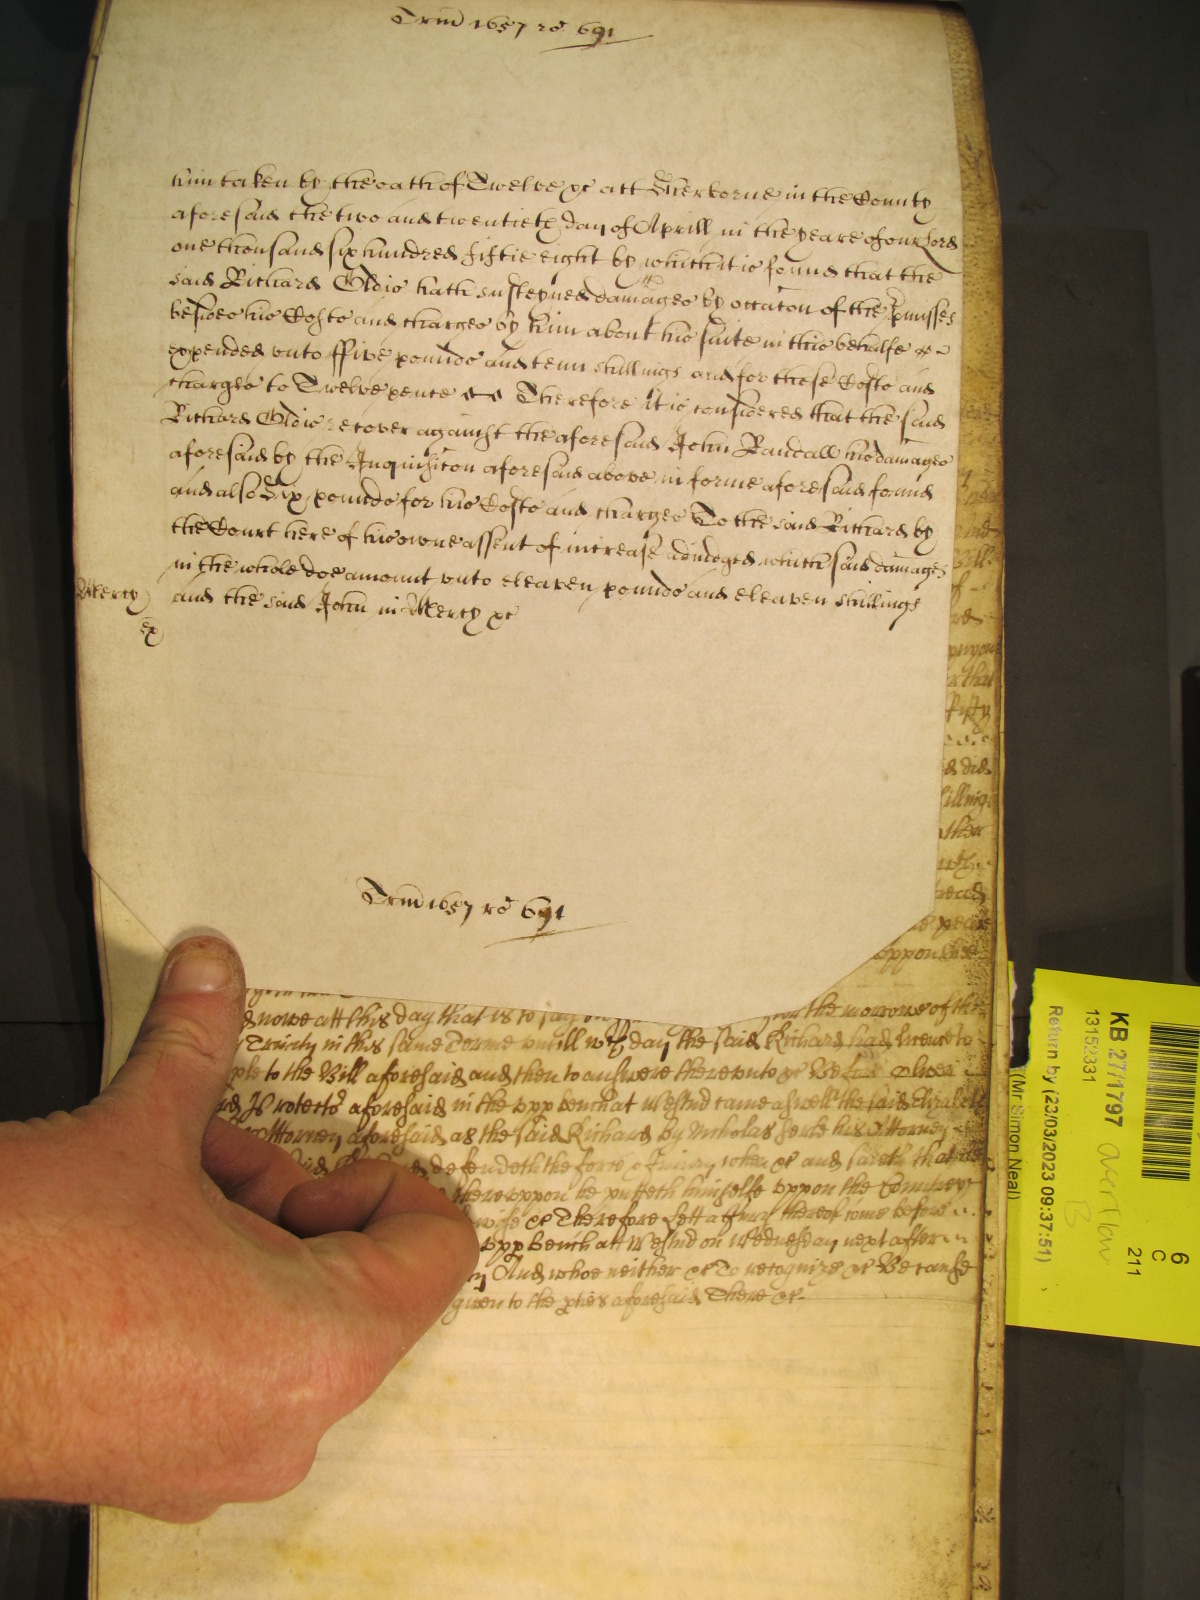 Trin 1657 ro 691
him taken by the oath of Twelve &c att Sherborne in the County
aforesaid the two and twentieth day of Aprill in the yeare of our Lord
one thousand six hundred fiftie eight by which it is found that the
said Richard Oldis hath susteyned damages by occacon of the pmisses
besides his Costs and charges by him about his suite in this behalfe
expended unto ffive pounds and tenn shillings and for those Costs and
charges to Twelve pence Therefore it is considered that the said
Richard Oldis recover against the aforesaid John Randall his damages
aforesaid by the Inquisicon aforesaid above in forme aforesaid found
and also Six pounds for his Costs and charges To the said Richard by
the Court here of his owne assent of increase adiudged which said damages
in the whole doe amount unto eleaven pounds and eleaven shillings
Mercy and the said John in Mercy &c
ex
Trin 1657 ro 691
nowe att this day that is to say the morrowe of the
Trinity in this same Terme untill wch day the said Richard had licence to
to the Bill aforesaid and then to answere thereunto &c Before Oliver
Protector aforesaid in the upp bench at Westmr came aswell the said Elizabeth
Attorney aforesaid as the said Richard by Nicholas his Attorney
defendeth the force & Iniury when &c and saith that
thereuppon he putteth himselfe uppon the Countrey
&c Therefore lett a Jury thereof come before
upp bench att Westmr on Wednesday next after
And whoe neither &c To recognize &c Because
given to the pties aforesaid There &c
KB 27/1797
13152331
Return by (23/03/2023 09:37:51)
(Mr Simon Neal)
overflow
B
6
C
211